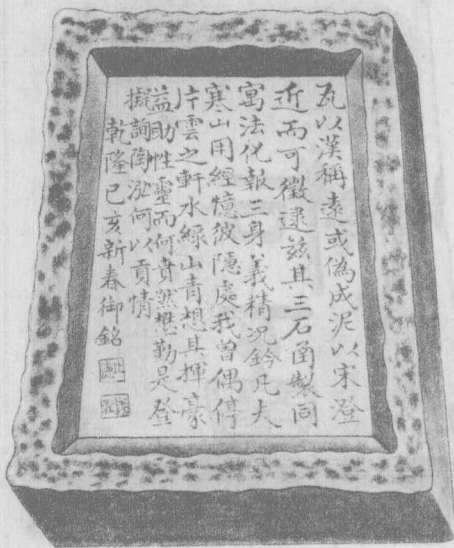 瓦以漢稱遠或偽成泥以宋澄
近而可徵逮茲其三石角製同
寓法化報三身義精況鈐凡夫
寒山用經憶彼隱處我曾偶停
片雲之軒水綠山青想其揮豪
益助性靈而何賁然懋勤是登
擬詢陶泓何以貢情
乾隆己亥新春御銘